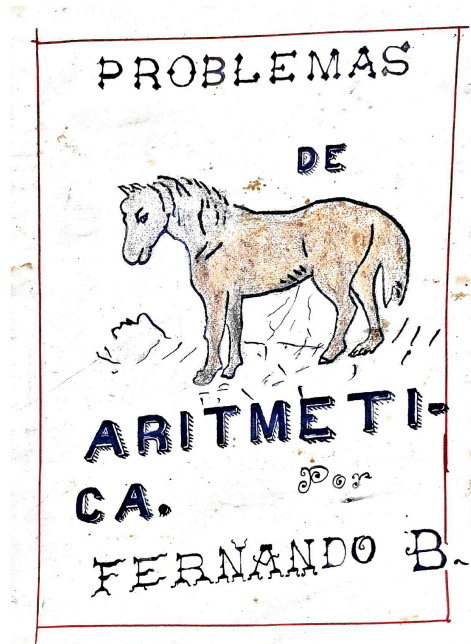 PROBLEMAS
DE
ARITMETI-
CA.
Por
FERNANDO B.